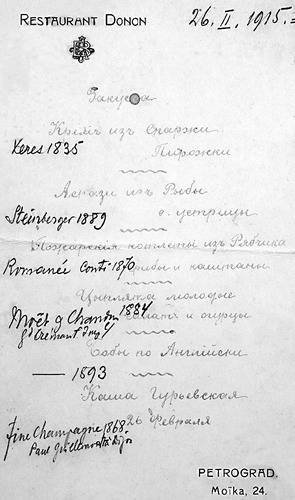 RESTAURANT DONON
26. II. 1915.=
Закуска
Кремъ изъ Спаржи
Xeres 1835
Пирожки
изъ Рыбы
Steinberger 1889
с. устрицы
Пожарския котлеты изъ Рябчика
Romanée Conti 1870
грибы и каштаны
Цыплята молодые
Moët & Chandon 1884
и огурцы
Gd Crémant Imp
Бобы по Англійски
— 1893
Каша Гурьевская
fine Champagne 1868
26 Февраля
Paul
PETROGRAD.
Moïka, 24.